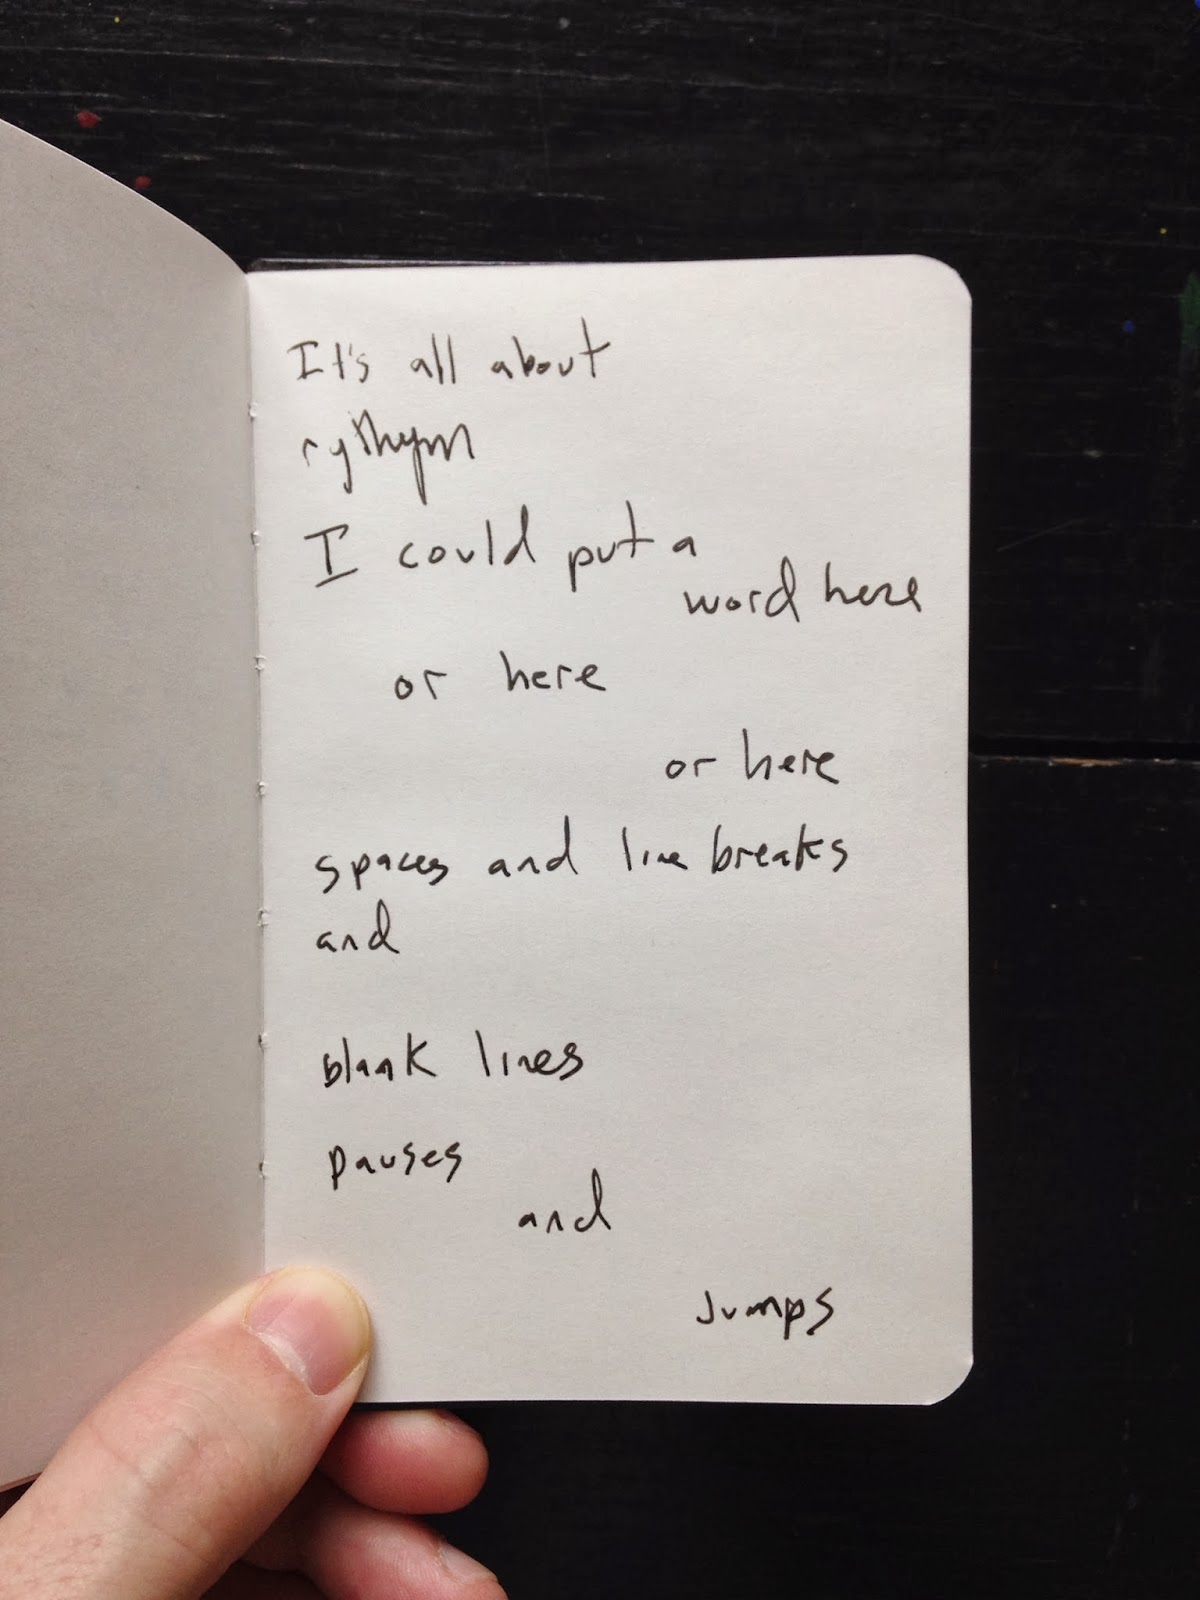 It's all about
rythym
I could put a
word here
or here
or here
spaces and line breaks
and
blank lines
pauses
and
Jumps